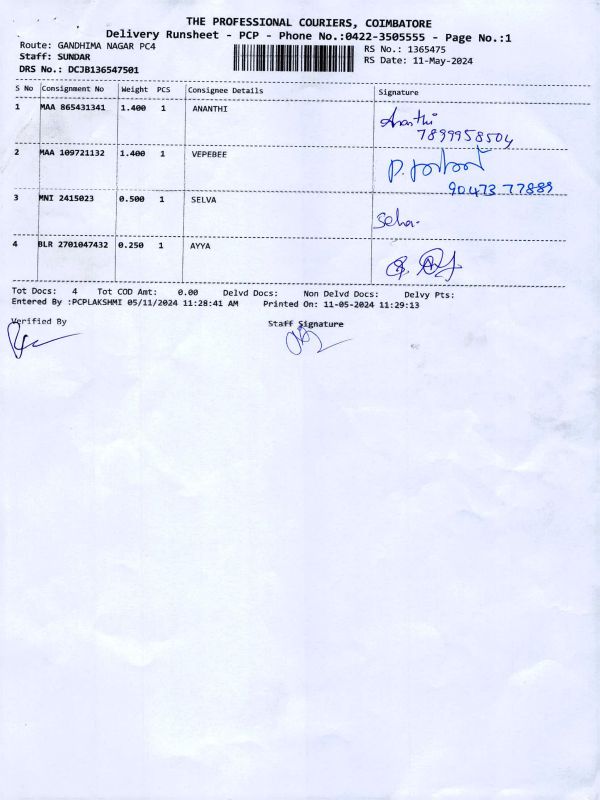 THE PROFESSIONAL COURIERS, COIMBATORE
Delivery Runsheet - PCP - Phone No.:0422-3505555 - Page No.:1
Route: GANDHIMA NAGAR PC4
Staff: SUNDAR
DRS No.: DCJB136547501
RS No.: 1365475
RS Date: 11-May-2024
S No Consignment No Weight PCS Consignee Details Signature
1 MAA 865431341 1.400 1 ANANTHI Ananthi
7899958504
2 MAA 109721132 1.400 1 VEPEBEE P.
90473 77889
3 MNI 2415023 0.500 1 SELVA Selva
4 BLR 2701047432 0.250 1 AYYA
Tot Docs: 4 Tot COD Amt: 0.00 Delvd Docs: Non Delvd Docs: Delvy Pts:
Entered By :PCPLAKSHMI 05/11/2024 11:28:41 AM Printed On: 11-05-2024 11:29:13
Verified By Staff Signature